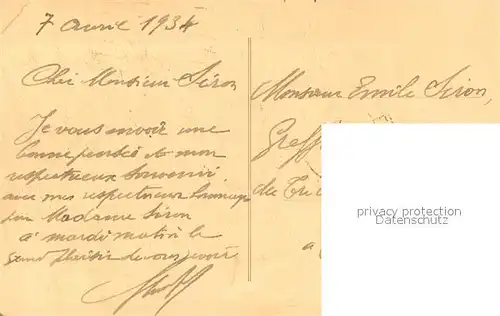 7 avril 1934
Cher Monsieur Siron
Je vous envoie une
bonne pensée et mon
respectueux souvenir
avec mes respectueux hommages
pour Madame Siron
à mardi matin le
grand plaisir de vous revoir
Monsieur Emile Siron,
Greff
du Tri
a
privacy protection
Datenschutz